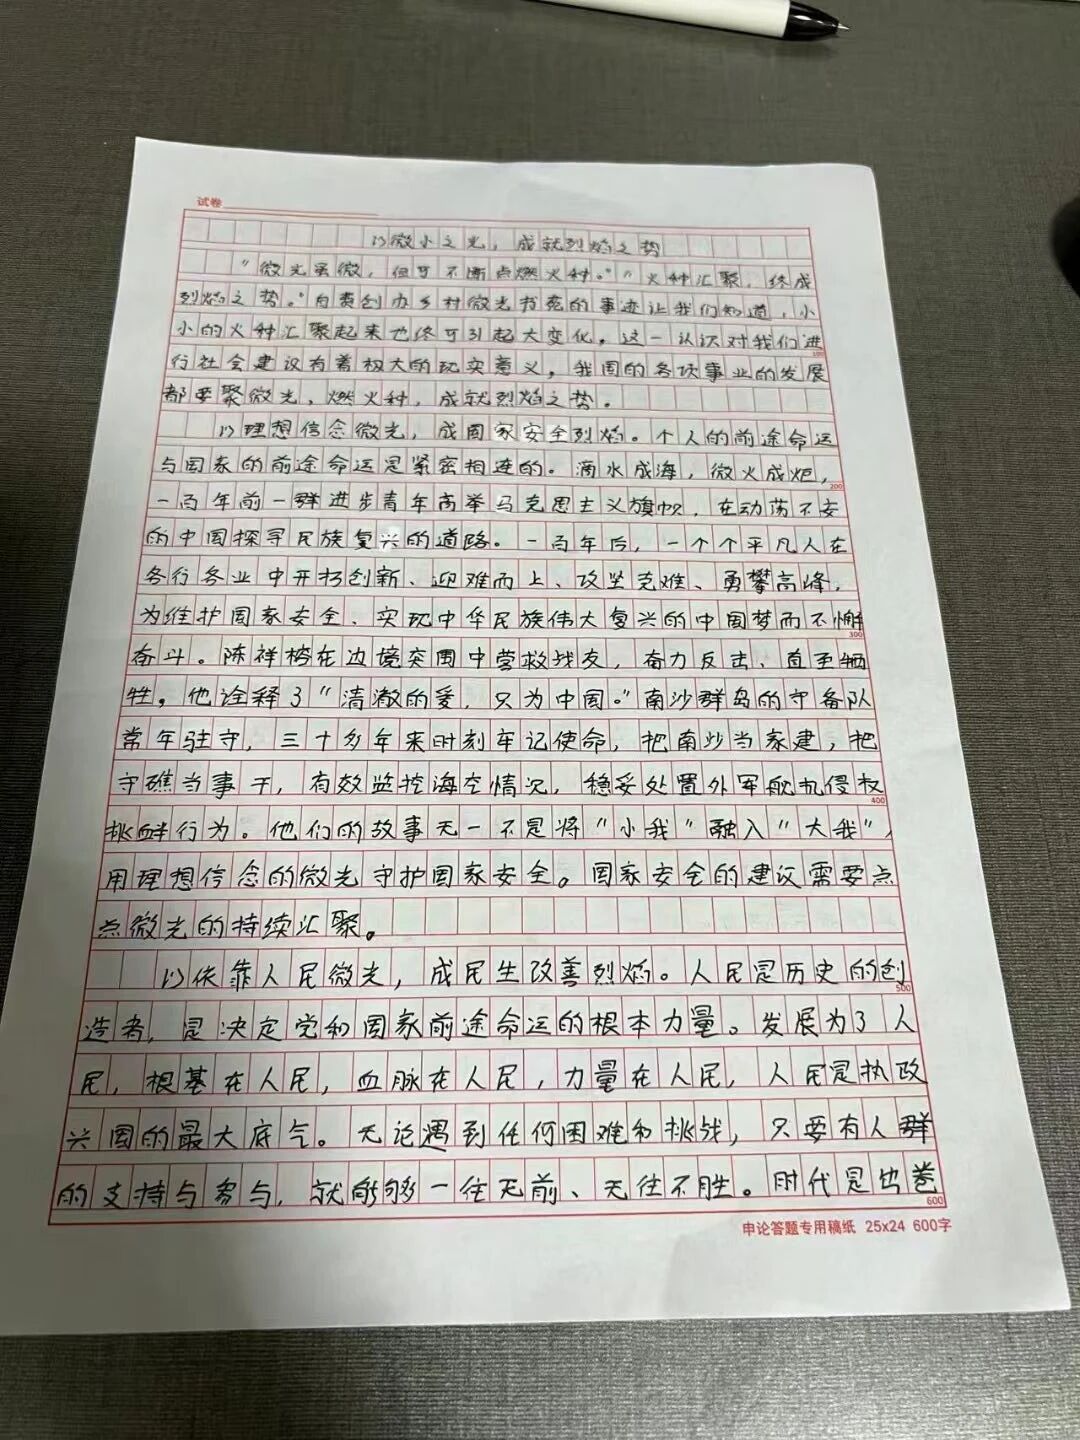 试卷
以微小之光，成就烈焰之势
“微光虽微，但可不断点燃火种。”“火种汇聚，终成
烈焰之势。”自费创办乡村微光书苑的事迹让我们知道，小
小的火种汇聚起来也终可引起大变化。这一认识对我们进
100
行社会建设有着极大的现实意义，我国的各项事业的发展
都要聚微光，燃火种，成就烈焰之势。
以理想信念微光，成国家安全烈焰。个人的前途命运
与国家的前途命运是紧密相连的。滴水成海，微火成炬，
200
一百年前一群进步青年高举马克思主义旗帜，在动荡不安
的中国探寻民族复兴的道路。一百年后，一个个平凡人在
各行各业中开拓创新、迎难而上、攻坚克难、勇攀高峰，
为维护国家安全、实现中华民族伟大复兴的中国梦而不懈
300
奋斗。陈祥榕在边境突围中营救战友，奋力反击、直至牺
牲，他诠释了“清澈的爱，只为中国。”南沙群岛的守备队
常年驻守，三十多年来时刻牢记使命，把南沙当家建，把
守礁当事干，有效监控海空情况，稳妥处置外军舰机侵权
400
挑衅行为。他们的故事无一不是将“小我”融入“大我”，
用理想信念的微光守护国家安全。国家安全的建设需要点
点微光的持续汇聚。
以依靠人民微光，成民生改善烈焰。人民是历史的创
500
造者，是决定党和国家前途命运的根本力量。发展为了人
民，根基在人民，血脉在人民，力量在人民，人民是执政
兴国的最大底气。无论遇到任何困难和挑战，只要有人群
的支持与参与，就能够一往无前、无往不胜。时代是出卷
600
申论答题专用稿纸 25x24 600字